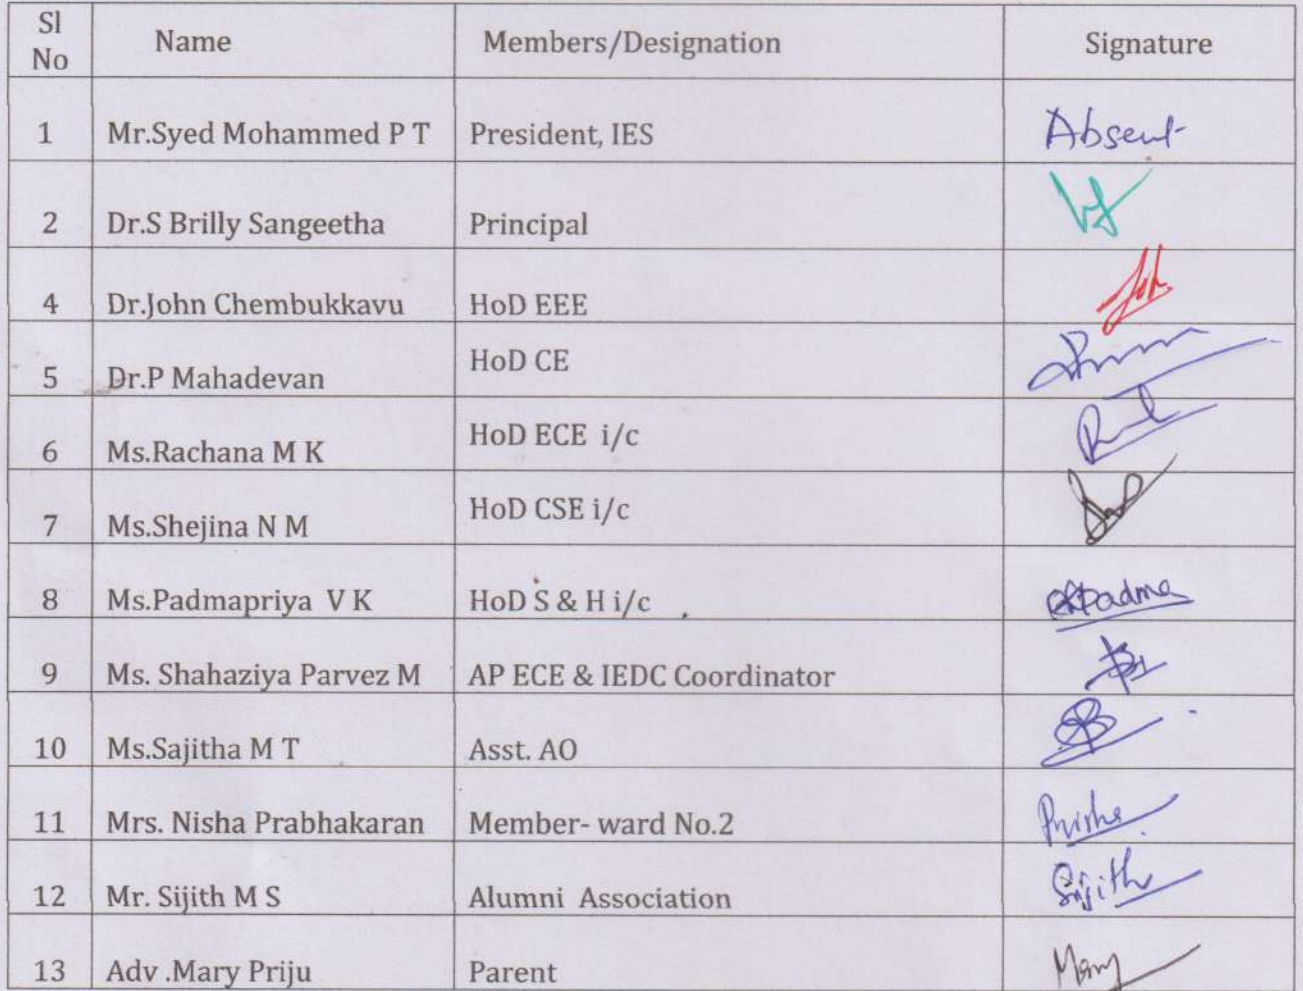 Sl No Name Members/Designation Signature
1 Mr.Syed Mohammed P T President, IES Absent
2 Dr.S Brilly Sangeetha Principal
4 Dr.John Chembukkavu HoD EEE
5 Dr.P Mahadevan HoD CE
6 Ms.Rachana M K HoD ECE i/c
7 Ms.Shejina N M HoD CSE i/c
8 Ms.Padmapriya V K HoD S & H i/c Padma
9 Ms. Shahaziya Parvez M AP ECE & IEDC Coordinator
10 Ms.Sajitha M T Asst. AO
11 Mrs. Nisha Prabhakaran Member- ward No.2
12 Mr. Sijith M S Alumni Association Sijith
13 Adv .Mary Priju Parent Mary